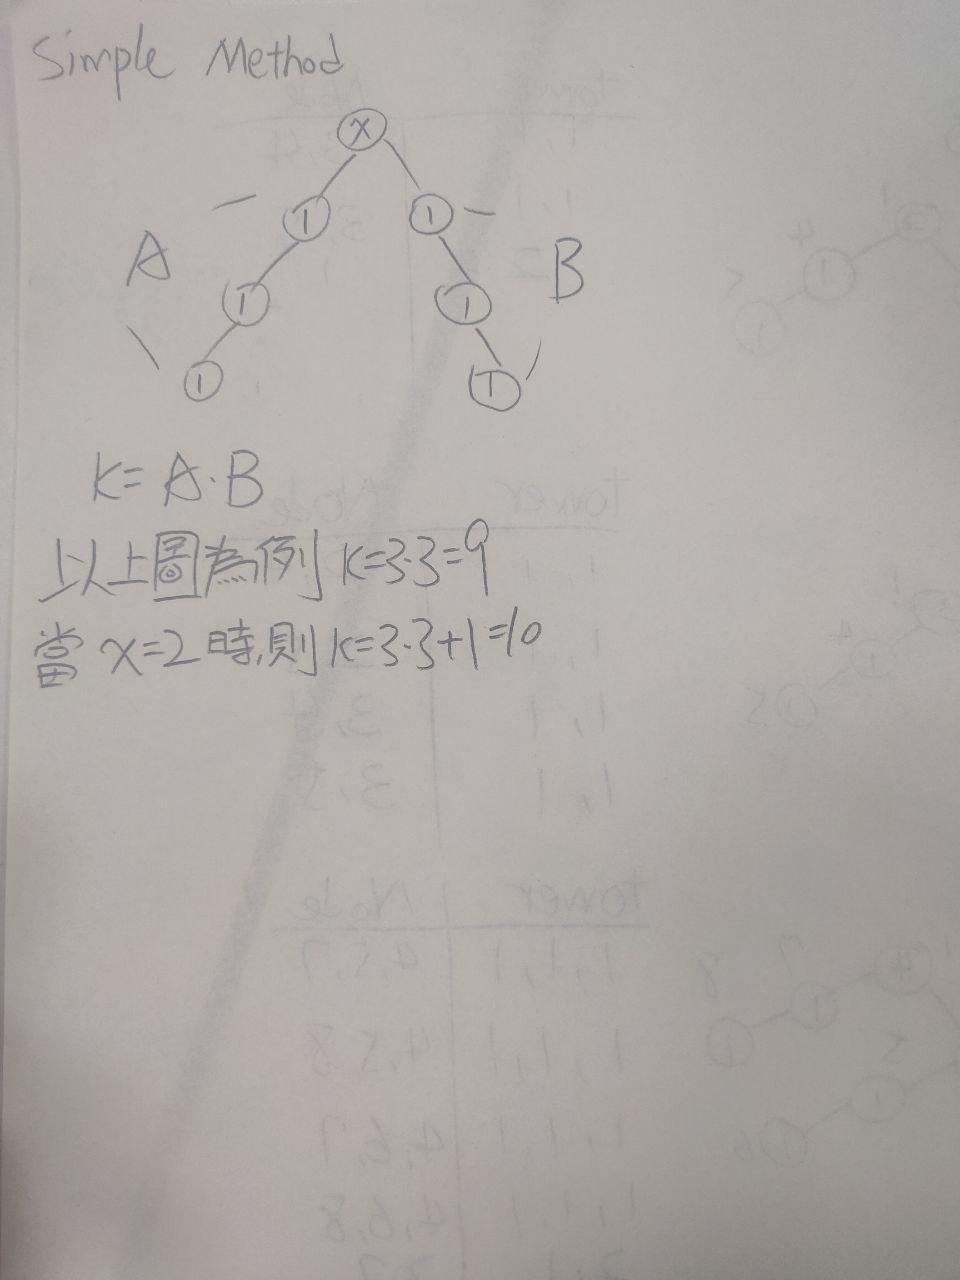 Simple Method
X
1 1
A B
1 1
1 1
K=A·B
以上圖為例 K=3·3=9
當 x=2 時,則 K=3·3+1=10